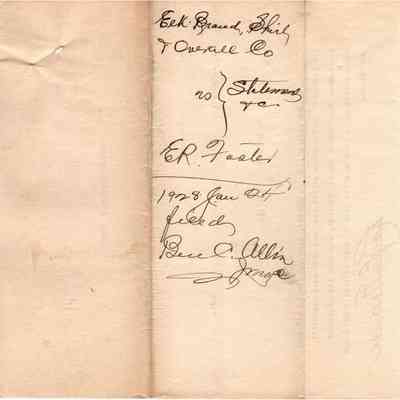 Elk Brand Shirt
& Overall Co
vs } Statement
&c.
E.R. Foster
1928 Jan 24
filed
Ben C. Allin